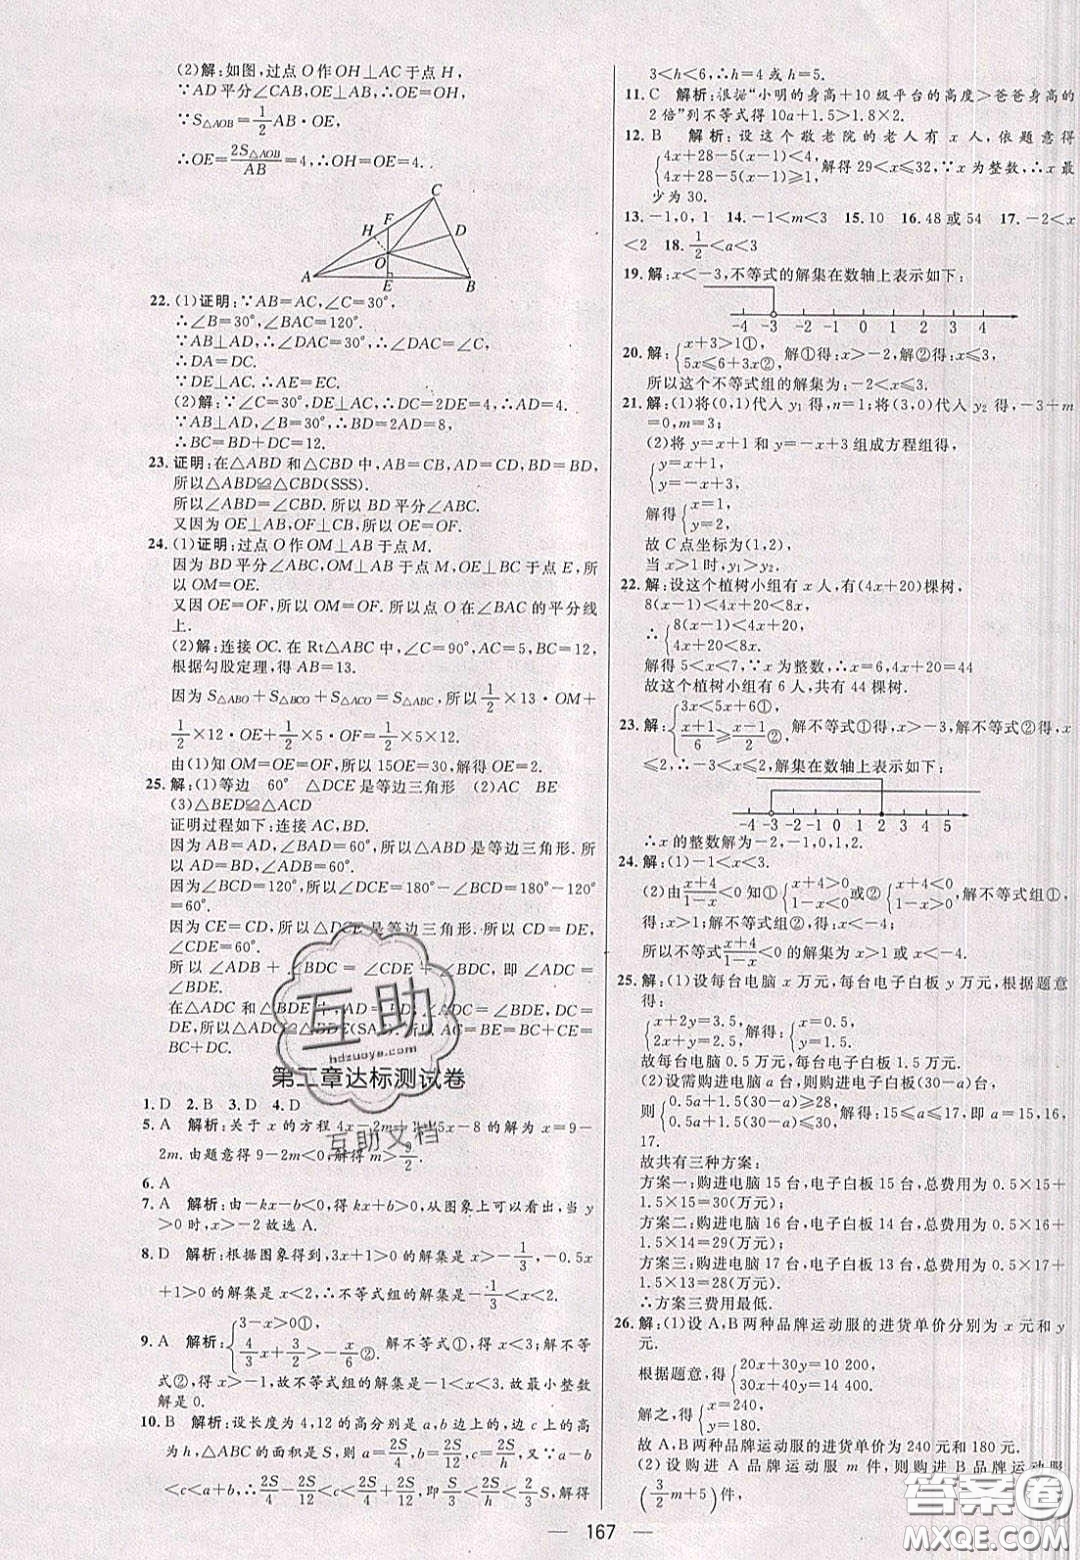 (2)解:如图,过点O作OH⊥AC于点H,
∵AD平分∠CAB,OE⊥AB,
∵S△AOB=1/2AB·OE,
∴OE=2S△AOB/AB=4,∴OH=OE=4..
C
F
H
D
O
A
E
B
22. (1)证明:∵AB=AC,∠C=30°,
∴∠B=30°,∠BAC=120°.
∵AB⊥AD,∴∠DAC=30°,∴∠DAC=∠C,
∴DA=DC.
∵DE⊥AC.∴AE=EC.
(2)解:∵∠C=30°,DE⊥AC,∴DC=2DE=4,∴AD=4.
∵AB⊥AD,∠B=30°,∴BD=2AD=8,
∴BC=BD+DC=12.
23. 证明:在△ABD和△CBD中,AB=CB,AD=CD,BD=BD,
所以△ABD≌△CBD(SSS).
所以∠ABD=∠CBD.所以BD平分∠ABC.
又因为OE⊥AB,OF⊥CB,所以OE=OF.
24. (1)证明:过点O作OM⊥AB于点M.
因为BD平分∠ABC,OM⊥AB于点M,OE⊥BC于点E,所
以OM=OE.
又因OE=OF,所以OM=OF.所以点O在∠BAC的平分线
上.
(2)解:连接OC.在Rt△ABC中,∠C=90°,AC=5,BC=12,
根据勾股定理,得AB=13.
因为S△ABO+S△BCO+S△ACO=S△ABC,所以1/2×13·OM+
1/2×12·OE+1/2×5·OF=1/2×5×12.
由(1)知OM=OE=OF,所以15OE=30,解得OE=2.
25. 解:(1)等边 60° △DCE是等边三角形 (2)AC BE
(3)△BED≌△ACD
证明过程如下:连接AC,BD.
因为AB=AD,∠BAD=60°,所以△ABD是等边三角形.所
以AD=BD,∠ADB=60°.
因为∠BCD=120°,所以∠DCE=180°−∠BCD=180°−120°
=60°.
因为CE=CD,所以△DCE是等边三角形.所以CD=DE,
∠CDE=60°.
所以∠ADB+∠BDC=∠CDE+∠BDC,即∠ADC=
∠BDE.
在△ADC和△BDE中,AD=BD,∠ADC=∠BDE,DC=
DE,所以△ADC≌△BDE(SAS).所以AC=BE=BC+CE=
BC+DC.
互助
hdzuoye.com
第二章达标测试卷
1. D 2. B 3. D 4. D
5. A 解析:关于x的方程4x−2m+1=5x−8的解为x=9−
2m.由题意得9−2m<0,解得m>9/2.
互助文档
6. A
7. A 解析:由−kx−b<0,得kx+b>0,从图象上可以看出,当y
>0时,x>−2故选A.
8. D 解析:根据图象得到,3x+1>0的解集是x>−1/3,−0.5x
+1>0的解集是x<2,∴不等式组的解集是−1/3<x<2.
9. A 解析:{3−x>0① 4/3x+1/3>−x/6② 解不等式①,得x<3,解不等
式②,得x>−1,故不等式组的解集是−1<x<3,故最小整数
解是0.
10. B 解析:设长度为4,12的高分别是a,b边上的,边c上的高
为h,△ABC的面积是S,则a=2S/4,b=2S/12,c=2S/h,又∵a−b
<c<a+b,∴2S/4−2S/12<c<2S/4+2S/12,即S/3<2S/h<2S/3,解得
3<h<6,∴h=4或h=5.
11. C 解析:根据“小明的身高+10级平台的高度>爸爸身高的
2倍”列不等式得10a+1.5>1.8×2.
12. B 解析:设这个敬老院的老人有x人,依题意得
{4x+28−5(x−1)<4, 4x+28−5(x−1)≥1, 解得29<x≤32,∵x为整数,∴x最
少为30.
13. −1,0,1 14. −1<m<3 15. 10 16. 48或54 17. −2<x
<2 18. 1/2<a<3
19. 解:x<−3,不等式的解集在数轴上表示如下:
−4 −3 −2 −1 0 1 2 3 4
20. 解:{x+3>1①, 5x≤6+3x②, 解①得:x>−2,解②得:x≤3,
所以这个不等式组的解集为:−2<x≤3.
21. 解:(1)将(0,1)代入y₁得,n=1;将(3,0)代入y₂得,−3+m
=0,m=3;
(2)将y=x+1和y=−x+3组成方程组得,
{y=x+1, y=−x+3,
解得{x=1, y=2,
故C点坐标为(1,2),
当x>1时,y₁>y₂.
22. 解:设这个植树小组有x人,有(4x+20)棵树,
8(x−1)<4x+20<8x,
∴{8(x−1)<4x+20, 4x+20<8x.
解得5<x<7,∵x为整数,∴x=6,4x+20=44
故这个植树小组有6人,共有44棵树.
23. 解:{3x<5x+6①, x+1/6≥x−1/2②, 解不等式①得,x>−3,解不等式②得,x
≤2,∴−3<x≤2,解集在数轴上表示如下:
−4 −3 −2 −1 0 1 2 3 4 5
∴x的整数解为−2,−1,0,1,2.
24. 解:(1)−1<x<3.
(2)由x+4/1−x<0知①{x+4>0 1−x<0或②{x+4<0 1−x>0,解不等式组①,
得:x>1;解不等式组②,得:x<−4.
所以不等式x+4/1−x<0的解集为x>1或x<−4.
25. 解:(1)设每台电脑x万元,每台电子白板y万元,根据题意
得:
{x+2y=3.5, 2x+y=2.5, 解得:{x=0.5, y=1.5,
故每台电脑0.5万元,每台电子白板1.5万元.
(2)设需购进电脑a台,则购进电子白板(30−a)台,
则{0.5a+1.5(30−a)≥28, 0.5a+1.5(30−a)≤30, 解得:15≤a≤17,即a=15,16,
17.
故共有三种方案:
方案一:购进电脑15台,电子白板15台,总费用为0.5×15+
1.5×15=30(万元);
方案二:购进电脑16台,电子白板14台,总费用为0.5×16+
1.5×14=29(万元);
方案三:购进电脑17台,电子白板13台,总费用为0.5×17+
1.5×13=28(万元).
∴方案三费用最低.
26. 解:(1)设A,B两种品牌运动服的进货单价分别为x元和y
元.
根据题意,得{20x+30y=10 200, 30x+40y=14 400.
解之,得{x=240, y=180.
故A,B两种品牌运动服的进货单价为240元和180元.
(2)设购进A品牌运动服m件,则购进B品牌运动服
(3/2m+5)件,
167
答案圈
MXQE.COM